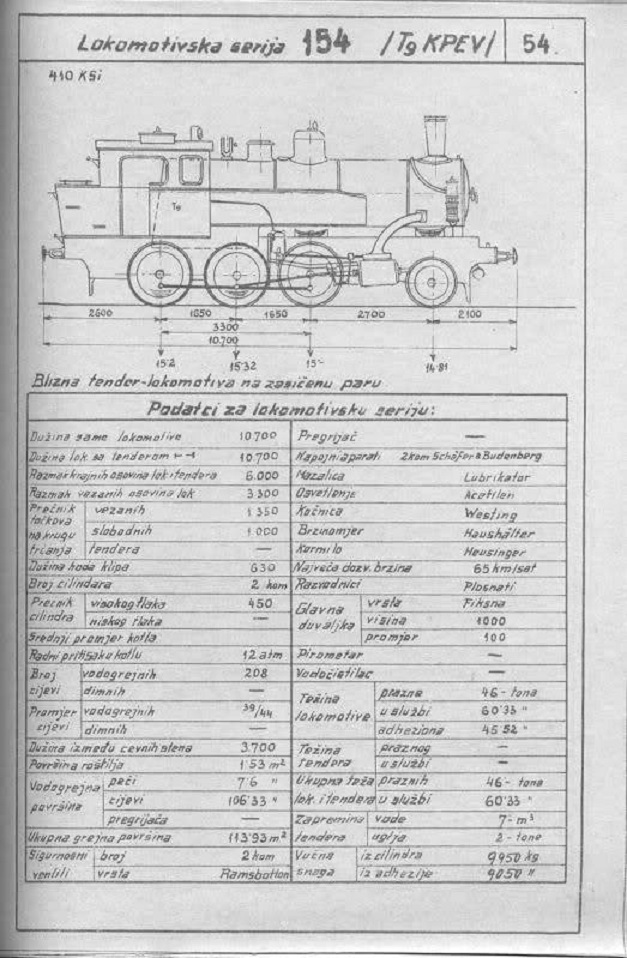 Lokomotivska serija 154 /T9 KPEV/ 54.
410 KSi
T9
2600 1650 1650 2700 2100
3300
10.700
15'2 15'32 15'- 14'81
Blizna tender-lokomotiva na zasićenu paru
Podatci za lokomotivsku seriju:
Dužina same lokomotive 10700
Dužina lok. sa tenderom 10.700
Razmak krajnih osovina lok i tendera 6.000
Razmak vezanih osovina lok 3300
Prečnik točkova na krugu trčanja vezanih 1350
slobodnih 1.000
tendera —
Dužina hoda klipa 630
Broj cilindara 2 kom
Prečnik cilindra visokog tlaka 450
niskog tlaka —
Srednji promjer kotla
Radni pritisak u kotlu 12 atm
Broj cijevi vodogrejnih 208
dimnih —
Promjer cijevi vodogrejnih 39/44
dimnih —
Dužina između cevnih stena 3.700
Površina roštilja 1'53 m²
Vodogrejna površina peći 7'6 "
cijevi 106'33 "
pregrijača —
Ukupna grejna površina 113'93 m²
Sigurnosni ventili broj 2 kom
vrsta Ramsbotton
Pregrijač —
Napojni aparati 2 kom Schäfer & Budenberg
Mazalica Lubrikator
Osvetlenje Acetilen
Kočnica Westing
Brzinomjer Haushälter
Kormilo Heusinger
Najveća dozv. brzina 65 km/sat
Razvodnici Plosnati
Glavna duvaljka vrsta Fiksna
visina 1000
promjer 100
Pirometar —
Vodočistilac —
Težina lokomotive prazne 46 - tona
u službi 60'33 "
adheziona 45'52 "
Težina tendera praznog —
u službi —
Ukupna teža praznih 46 - tona
lok. i tendera u službi 60'33 "
Zapremina tendera vode 7 - m³
uglja 2 - tone
Vučna snaga iz cilindra 9950 kg
iz adhezije 9050 "